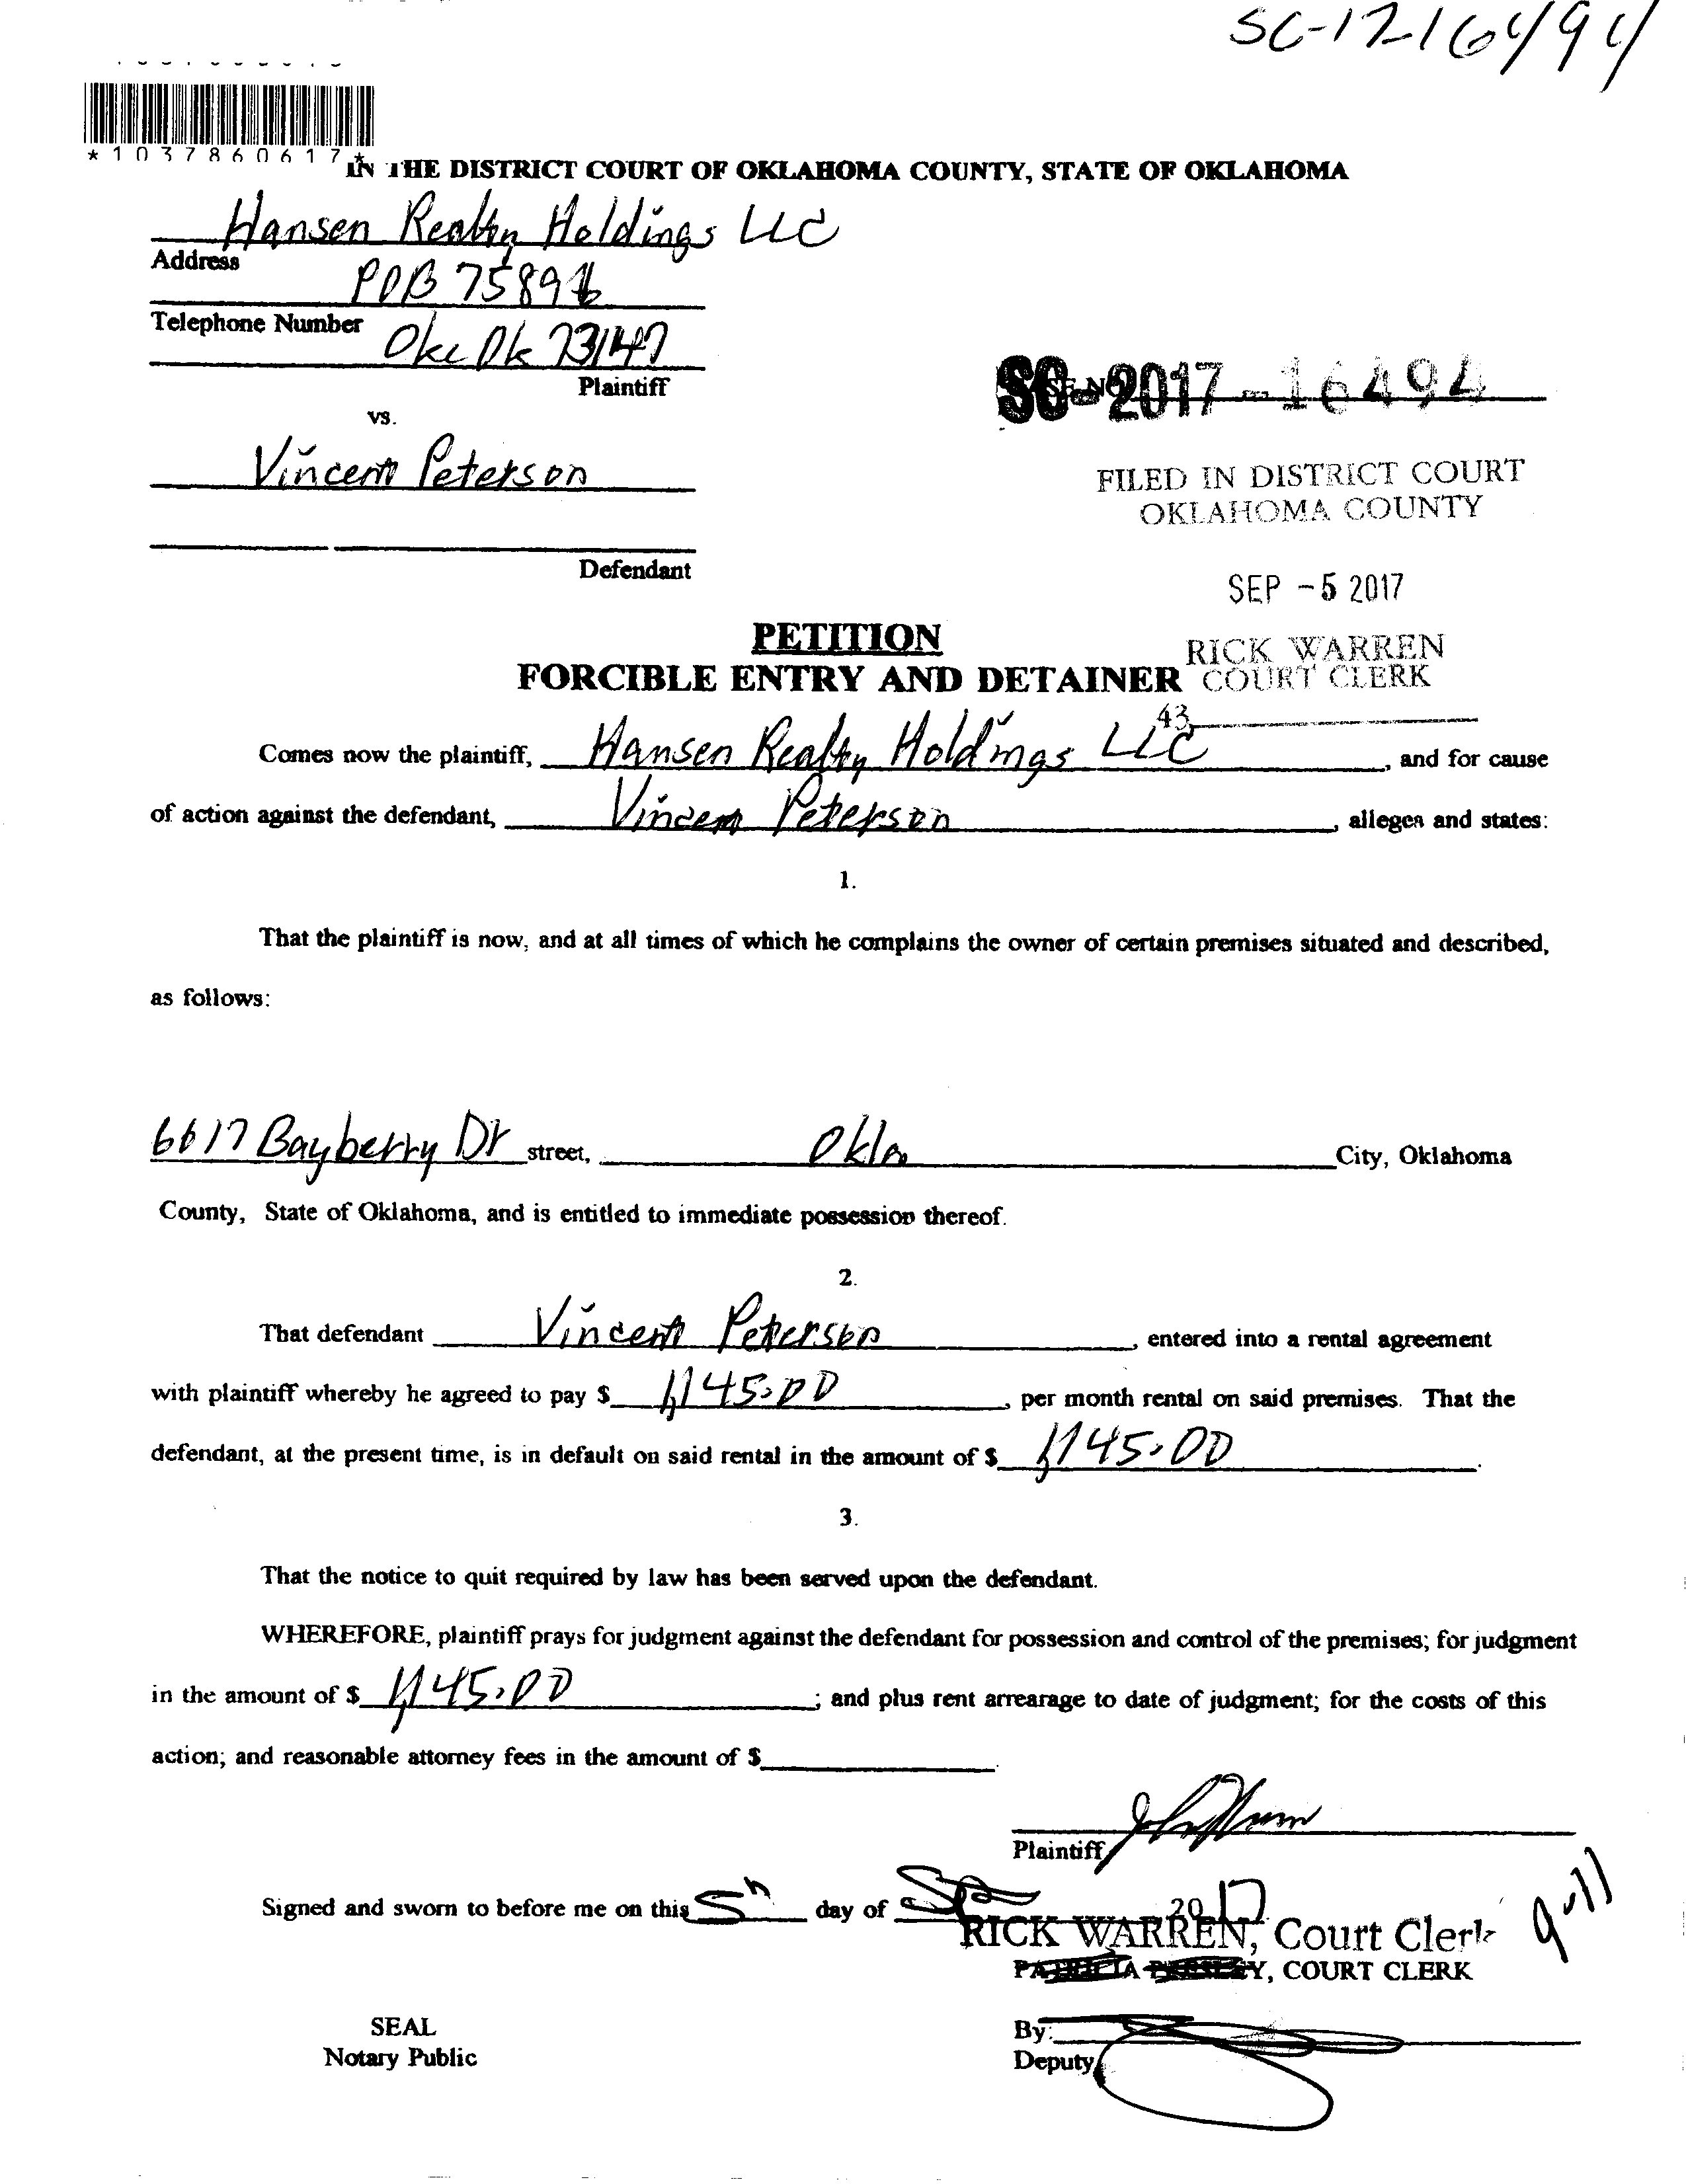 SC-1716494
*1037860617*
IN THE DISTRICT COURT OF OKLAHOMA COUNTY, STATE OF OKLAHOMA
Hansen Realty Holdings LLC
Address
POB 75891
Telephone Number
Okc Ok 73147
Plaintiff
SC-2017-16494
vs.
Vincent Peterson
FILED IN DISTRICT COURT
OKLAHOMA COUNTY
Defendant
SEP -5 2017
PETITION
RICK WARREN
FORCIBLE ENTRY AND DETAINER COURT CLERK
43
Comes now the plaintiff, Hansen Realty Holdings LLC, and for cause
of action against the defendant, Vincent Peterson, alleges and states:
1.
That the plaintiff is now, and at all times of which he complains the owner of certain premises situated and described,
as follows:
6617 Bayberry Dr street, Okla City, Oklahoma
County, State of Oklahoma, and is entitled to immediate possession thereof.
2.
That defendant Vincent Peterson, entered into a rental agreement
with plaintiff whereby he agreed to pay $ 1,145.00, per month rental on said premises. That the
defendant, at the present time, is in default on said rental in the amount of $ 1,145.00.
3.
That the notice to quit required by law has been served upon the defendant.
WHEREFORE, plaintiff prays for judgment against the defendant for possession and control of the premises; for judgment
in the amount of $ 1,145.00; and plus rent arrearage to date of judgment; for the costs of this
action; and reasonable attorney fees in the amount of $
Plaintiff
Signed and sworn to before me on this 5th day of Sep 2017
RICK WARREN, Court Clerk
COURT CLERK
9-11
SEAL
By:
Notary Public
Deputy